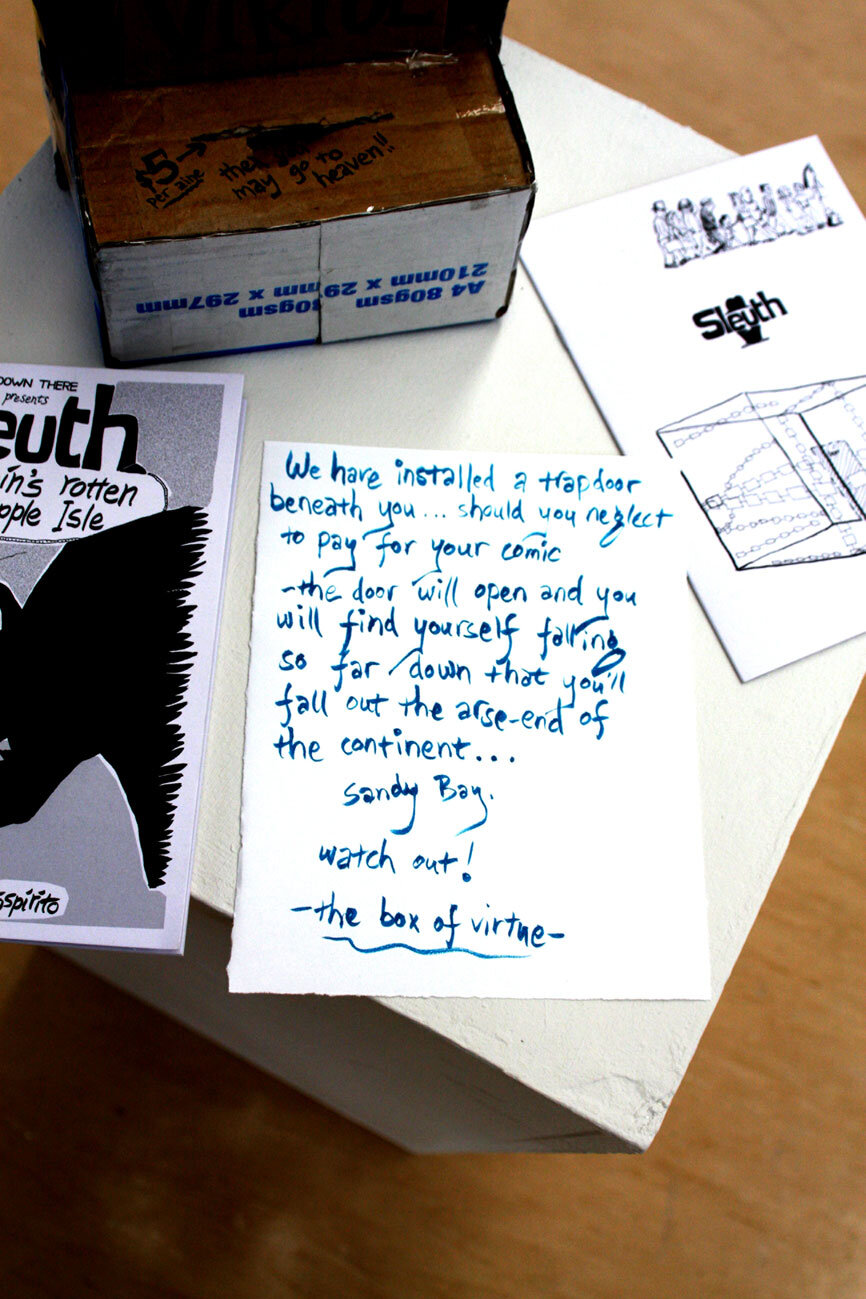 VIRTUE
$5
per zine
then you
may go to
heaven!!
A4 80gsm
210mm x 297mm
80gsm
210mm x 297mm
Sleuth
DOWN THERE
presents
euth
in's rotten
pple Isle
spirito
We have installed a trapdoor
beneath you... should you neglect
to pay for your comic
-the door will open and you
will find yourself falling
so far down that you'll
fall out the arse-end of
the continent...
Sandy Bay.
watch out!
-the box of virtue-